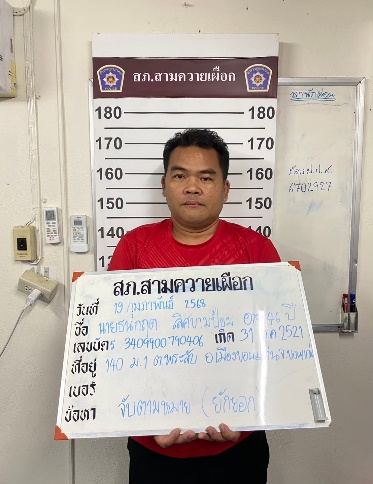 สภ.สามควายเผือก
180 180
170 170
160 160
150 150
140
130
สภ.สามควายเผือก
วันที่ 19 กุมภาพันธ์ 2568
ชื่อ นายธนกฤต อายุ 46 ปี
เลขบัตร 3409400790406 เกิด 31 ค 2521
ที่อยู่ 140 ม.1 ต.พระลับ อ.เมืองขอนแก่น จ.ขอนแก่น
เบอร์
ข้อหา จับตามหมาย (ยักยอก)
6702927